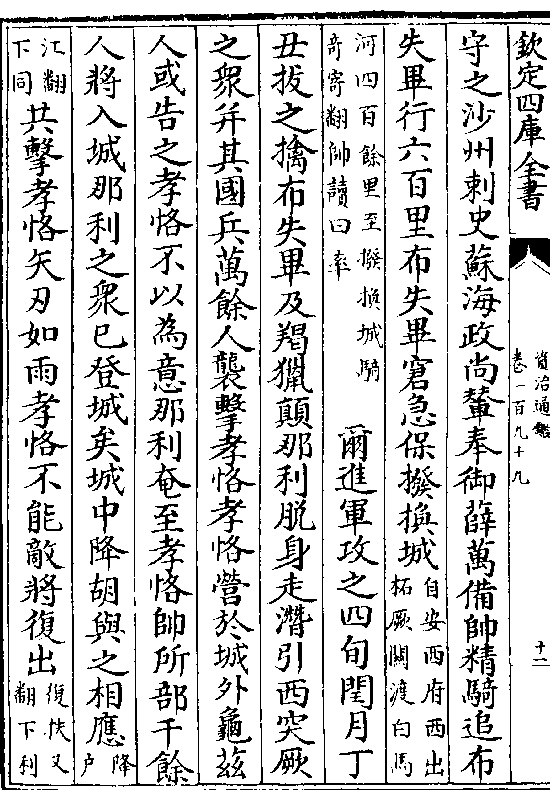 欽定四庫全書
資治通鑑
卷一百九十九
十二
守之沙州刺史蘇海政尚輦奉御薛萬備帥精騎追布
失畢行六百里布失畢窘急保撥換城自安西府西出柘厥關渡白馬
河四百餘里至撥換城騎奇寄翻帥讀曰率爾進軍攻之四旬閏月丁
丑拔之擒布失畢及羯獵顛那利脫身走潛引西突厥
之衆并其國兵萬餘人襲擊孝恪孝恪營於城外龜茲
人或告之孝恪不以為意那利奄至孝恪帥所部千餘
人將入城那利之衆已登城矣城中降胡與之相應降户
江翻下同共擊孝恪矢刃如雨孝恪不能敵將復出復扶又翻下利